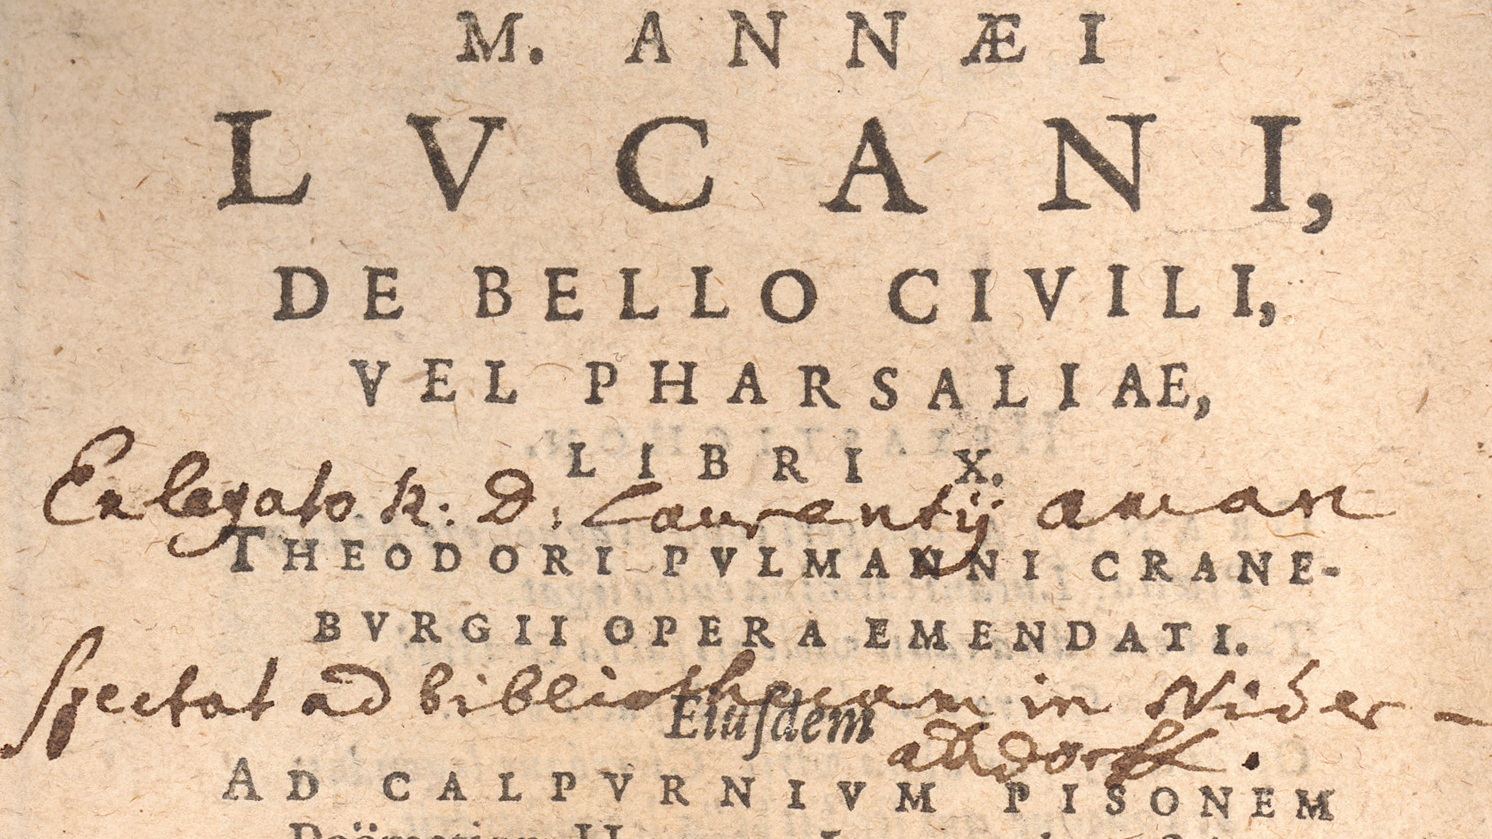 M. ANNÆI
LVCANI,
DE BELLO CIVILI,
VEL PHARSALIAE,
LIBRI X.
Ex legato R. D. Laurentij aman
THEODORI PVLMANNI CRANE-
BVRGII OPERA EMENDATI.
Spectat ad bibliothecam in Nider-
Eiuſdem
AD CALPVRNIVM PISONEM